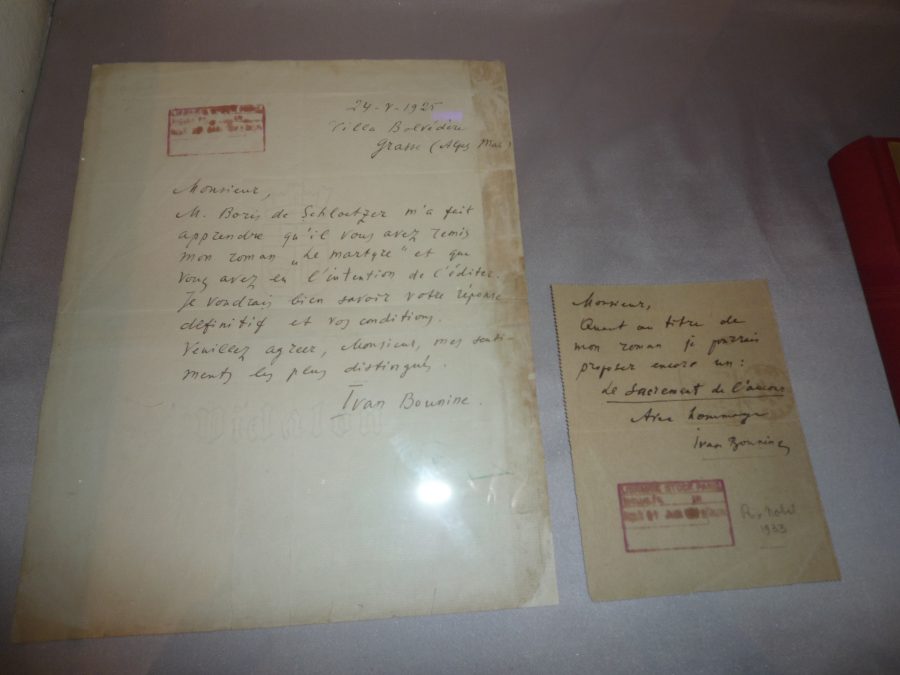 24-V-1925
Villa Belvédère
Grasse (Alpes Mar.)
Monsieur,
M. Boris de Schloetzer m'a fait
apprendre qu'il vous avez remis
mon roman „Le martyre" et que
vous avez eu l'intention de l'éditer.
Je vondrais bien savoir votre réponse
définitif et vos conditions.
Venillez agréer, Monsieur, mes senti-
ments les plus distingués.
Ivan Bounine.
Monsieur,
Quant au titre de
mon roman je pourrais
proposer encore un:
Le Sacrement de l'amour
Avec hommage
Ivan Bounine
LIBRAIRIE STOCK PARIS
Prix Nobel
1933